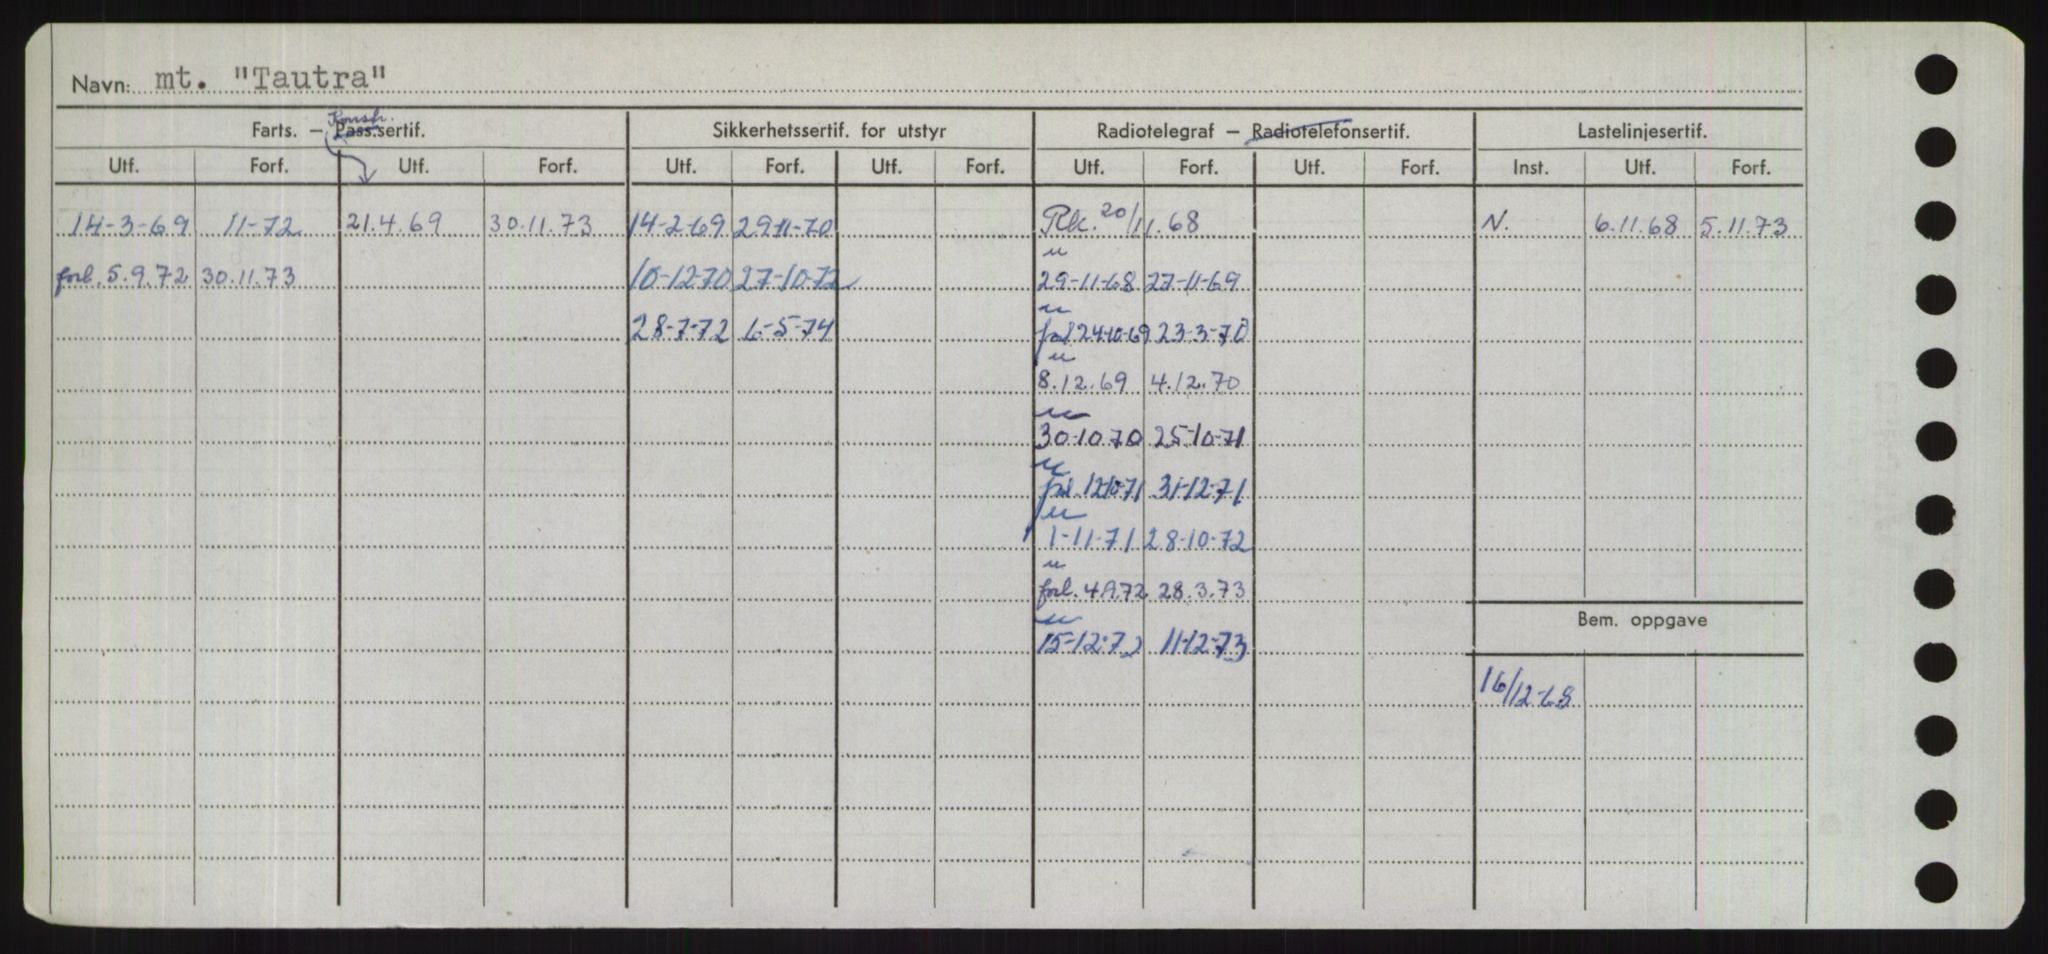 Navn: mt. "Tautra"
Konstr.
Farts. — Pass.sertif. Sikkerhetssertif. for utstyr Radiotelegraf — Radiotelefonsertif. Lastelinjesertif.
Utf. Forf. Utf. Forf. Utf. Forf. Utf. Forf. Utf. Forf. Utf. Forf. Inst. Utf. Forf.
14-3-69 11-72 21.4.69 30.11.73 14-2-69 29-11-70 20/11.68 N. 6.11.68 5.11.73
u
forl. 5.9.72 30.11.73 10-12-70 27-10-72 29-11-68 27-11-69
u
28-7-72 6-5-74 forl 24-10-69 23-3-70
u
8.12.69 4.12.70
u
30-10-70 25-10-71
u
forl. 12-10-71 31-12-71
u
1-11-71 28-10-72
u
forl. 28.3.73
Bem. oppgave
u
15-12-72 11-12-73
16/12-68